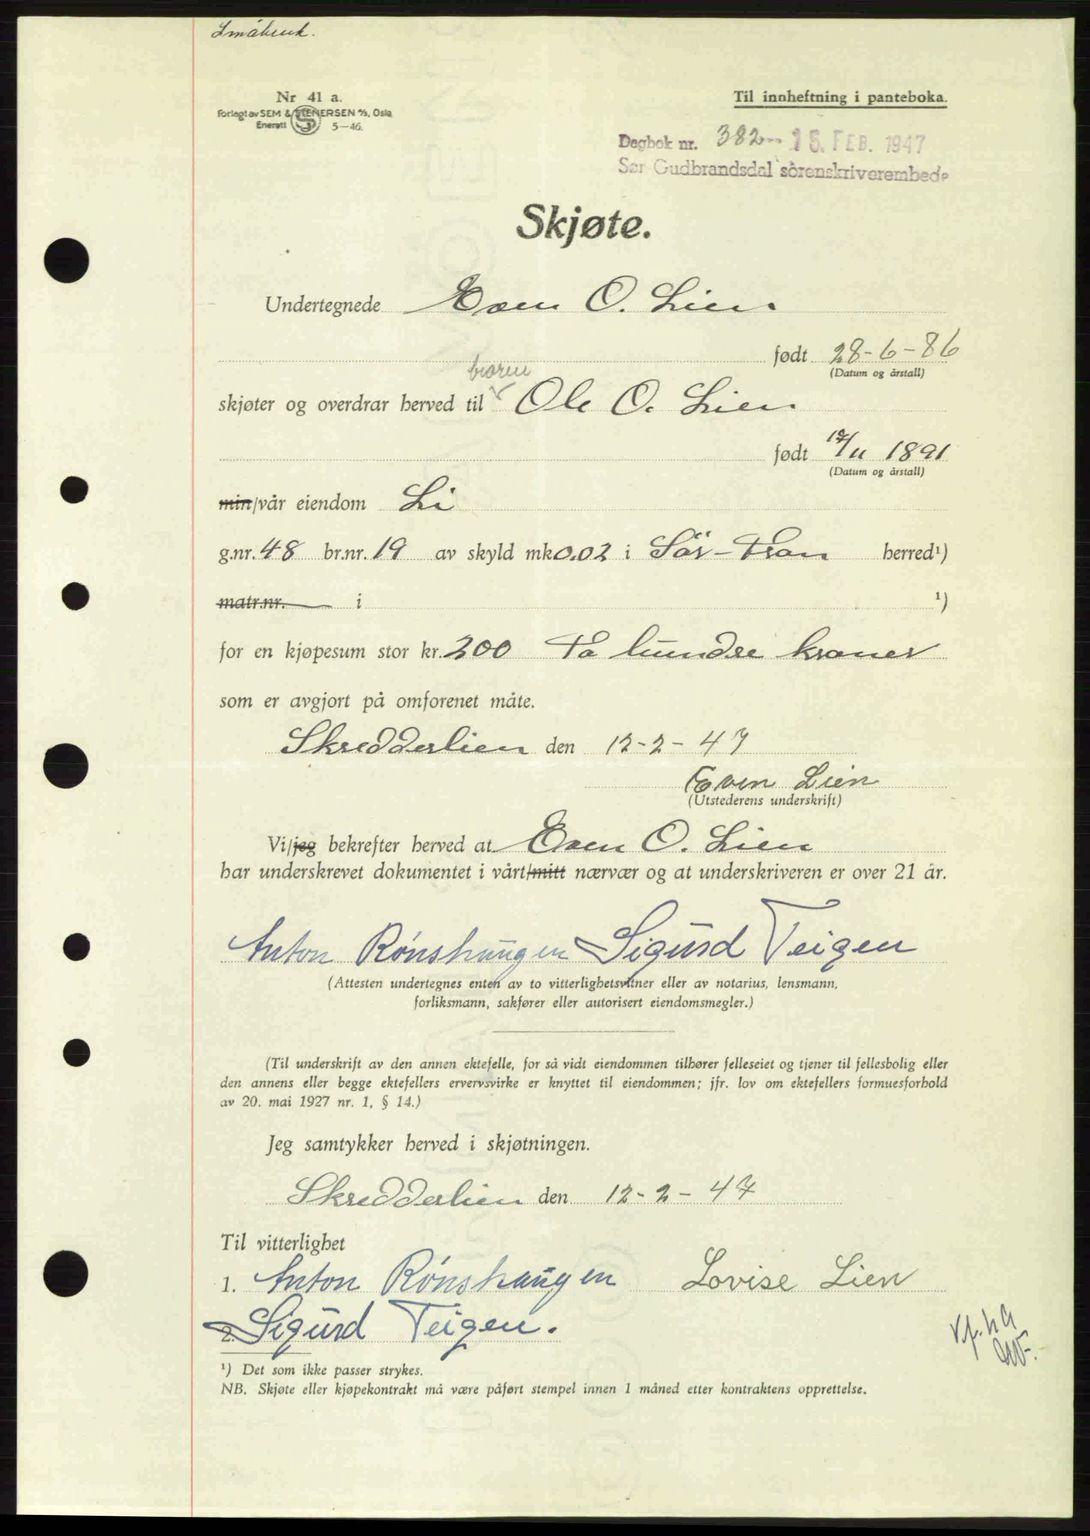 Småbruk.
Nr 41 a.
Forlagt av SEM & STENERSEN A/S, Oslo
Enerett 5—46.
Til innheftning i panteboka.
Dagbok nr. 382 - 15. FEB. 1947
Sør-Gudbrandsdal sorenskriverembede
Skjøte.
Undertegnede Even O. Lien
født 28-6-86
(Datum og årstall)
skjøter og overdrar herved til Ole O. Lien
født 12/11 1891
(Datum og årstall)
min/vår eiendom Li
g.nr. 48 br.nr. 19 av skyld mk 0.02 i Sör-Fron herred¹)
matr.nr. i ¹)
for en kjøpesum stor kr. 200 To hundre kroner
som er avgjort på omforenet måte.
Skredderlien den 12-2-47
Even Lien
(Utstederens underskrift)
Vi/jeg bekrefter herved at Even O. Lien
har underskrevet dokumentet i vårt/mitt nærvær og at underskriveren er over 21 år.
Anton Rønshaugen Sigurd Teigen
(Attesten undertegnes enten av to vitterlighetsvitner eller av notarius, lensmann,
forliksmann, sakfører eller autorisert eiendomsmegler.)
(Til underskrift av den annen ektefelle, for så vidt eiendommen tilhører felleseiet og tjener til fellesbolig eller
den annens eller begge ektefellers ervervsvirke er knyttet til eiendommen; jfr. lov om ektefellers formuesforhold
av 20. mai 1927 nr. 1, § 14.)
Jeg samtykker herved i skjøtningen.
Skredderlien den 12-2-47
Til vitterlighet
1. Anton Rønshaugen Lovise Lien
2. Sigurd Teigen.
¹) Det som ikke passer strykes.
NB. Skjøte eller kjøpekontrakt må være påført stempel innen 1 måned etter kontraktens opprettelse.